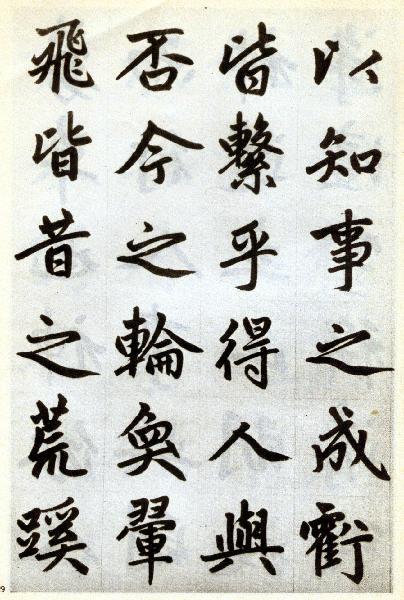 以知事之成虧
皆繫乎得人與
否今之輪奐翬
飛皆昔之荒蹊